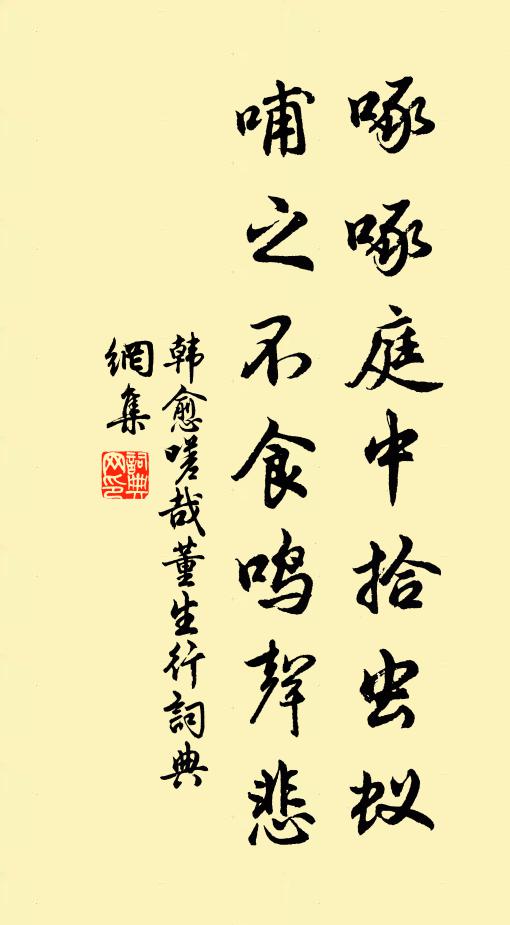 啄啄庭中拾虫蚁
哺之不食鸣聲悲
韩愈嗟哉董生行詞典
網集
詞典
网印